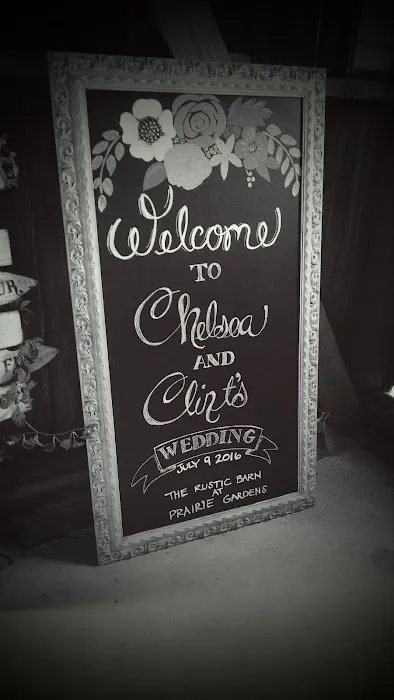 Welcome
TO
Chelsea
AND
Clint's
WEDDING
JULY 9 2016
THE RUSTIC BARN
AT
PRAIRIE GARDENS